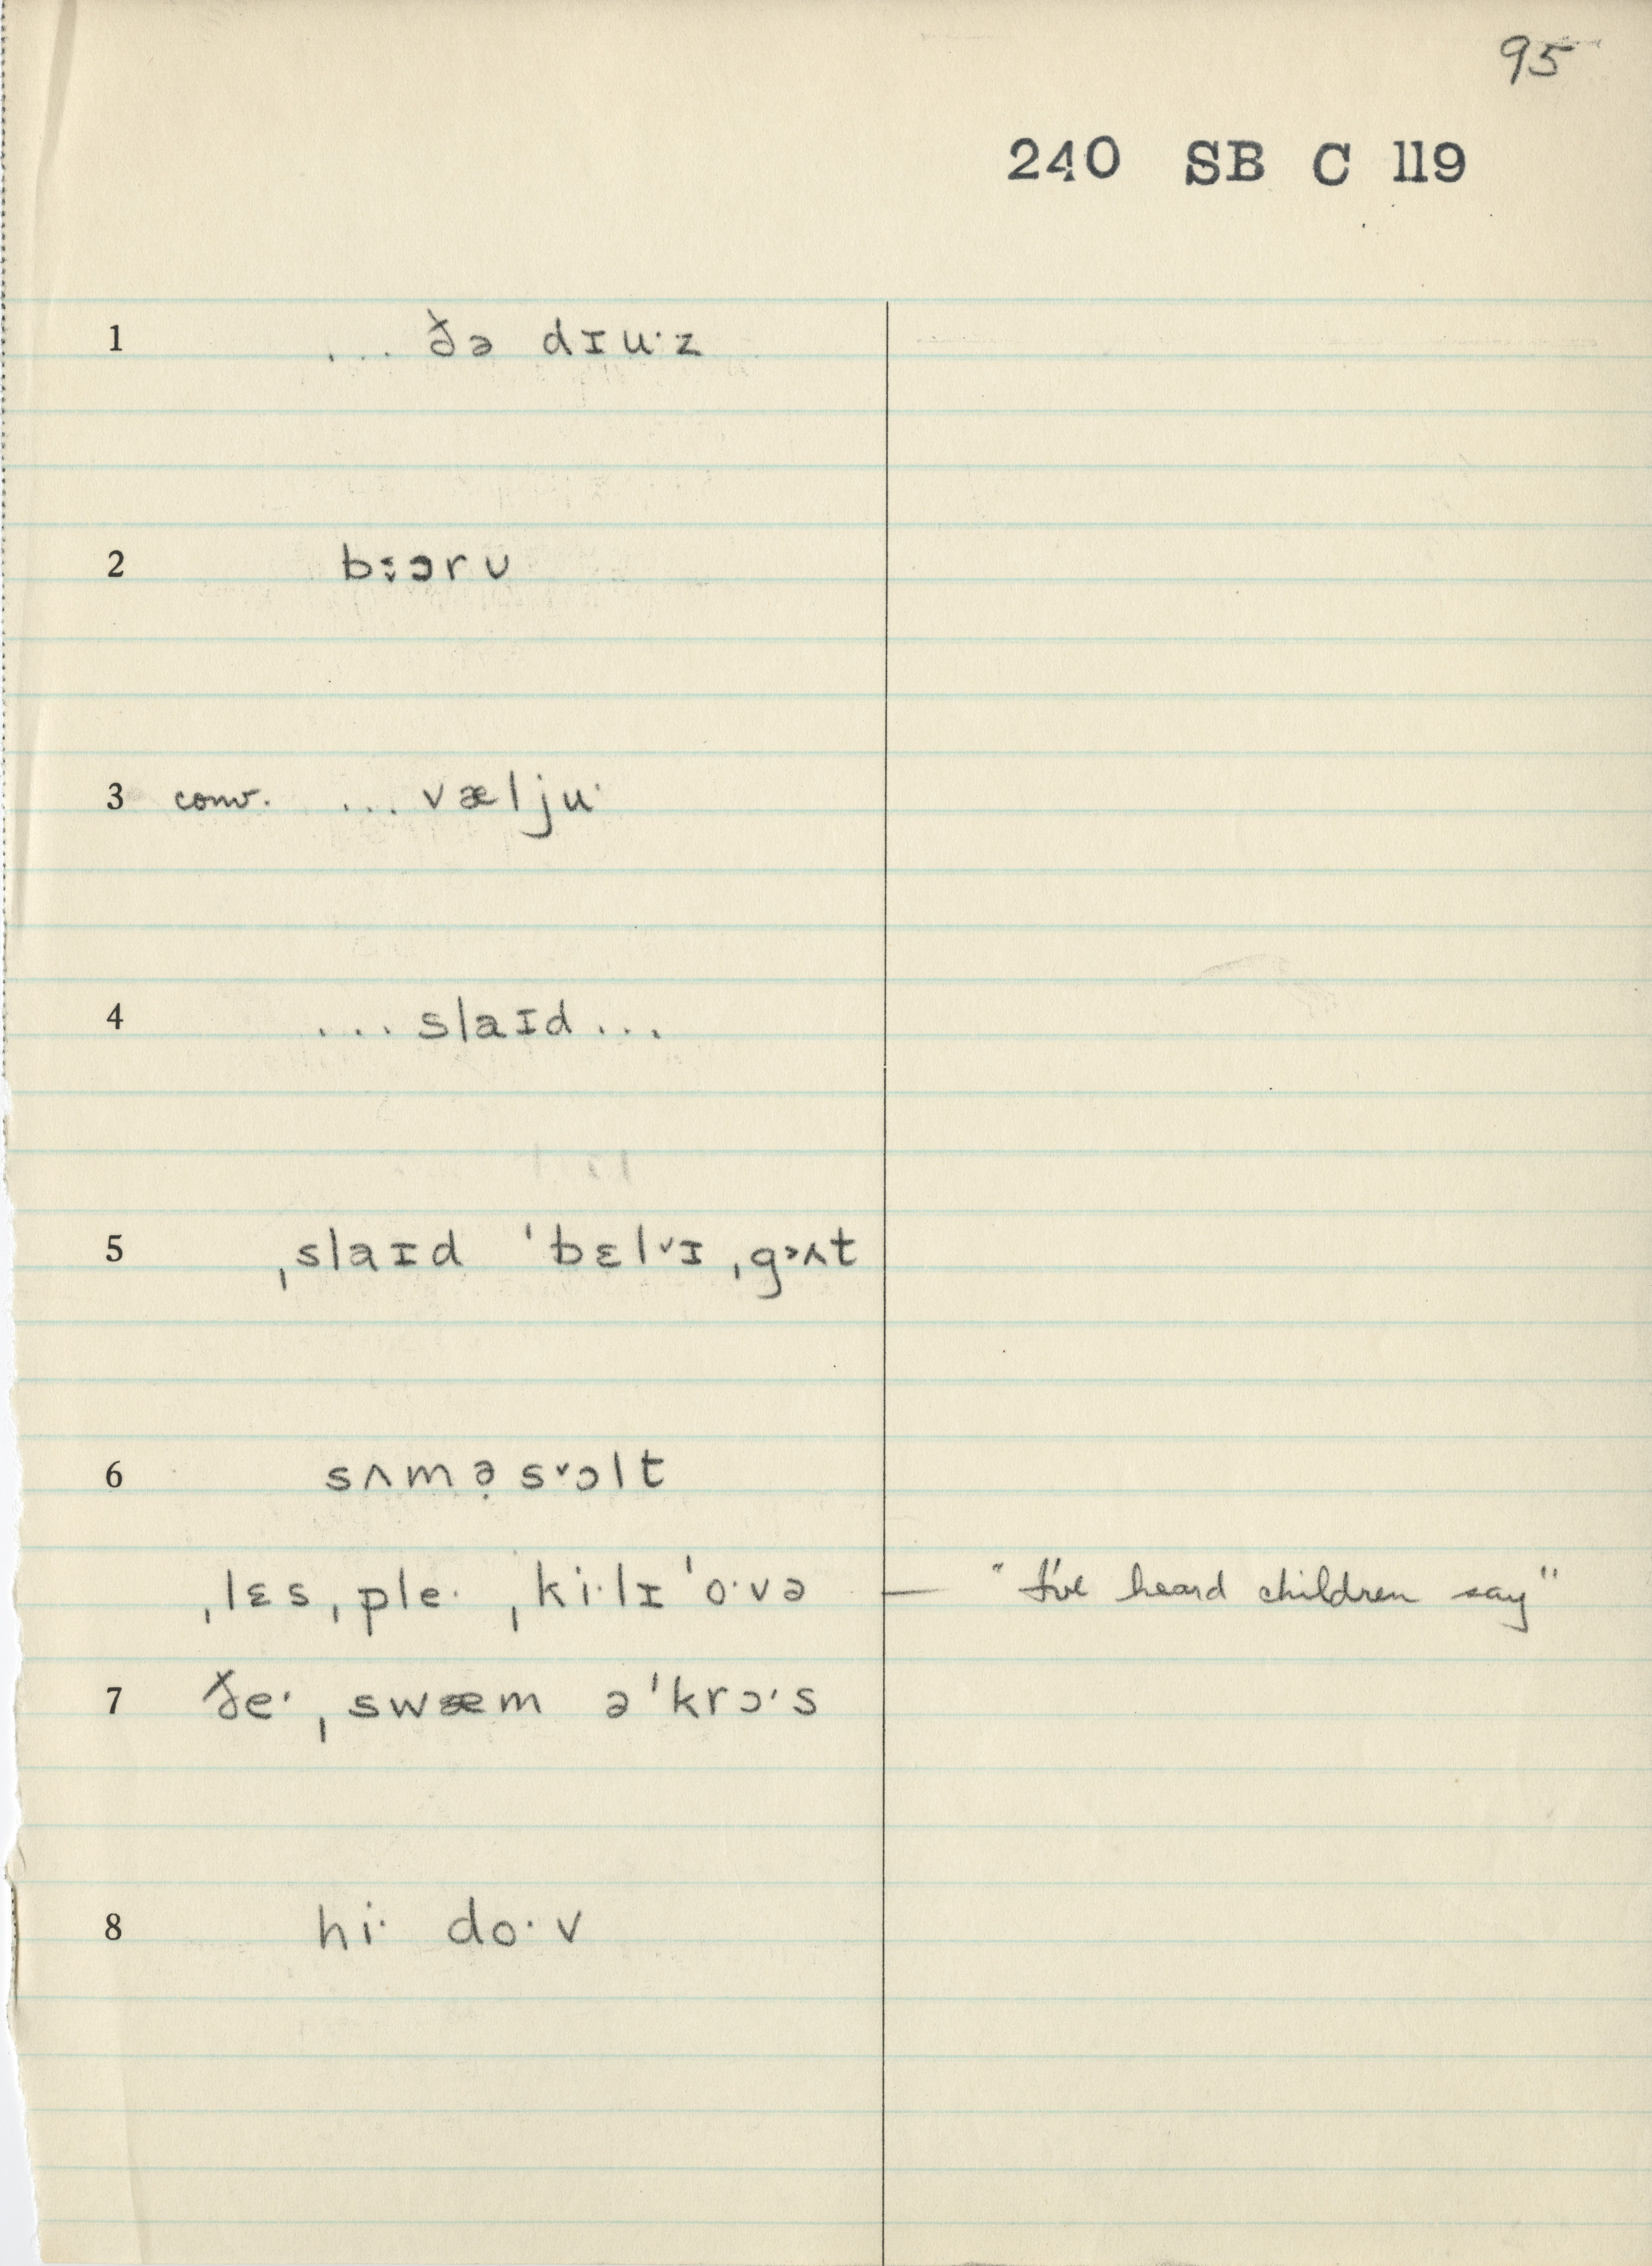 95
240 SB C 119
1 ... ðə dɪu·z
2 bɔru
3 conv. ... vælju·
4 ... slaɪd ...
5 ˌslaɪd ˈbɛl˅ɪ ˌg˃ʌt
6 sʌmə̣s˅ɔlt
ˌlɛs ˌple· ˌki·lɪˈo·və — "I've heard children say"
7 ðe· ˌswæm əˈkrɔ·s
8 hi· do·v